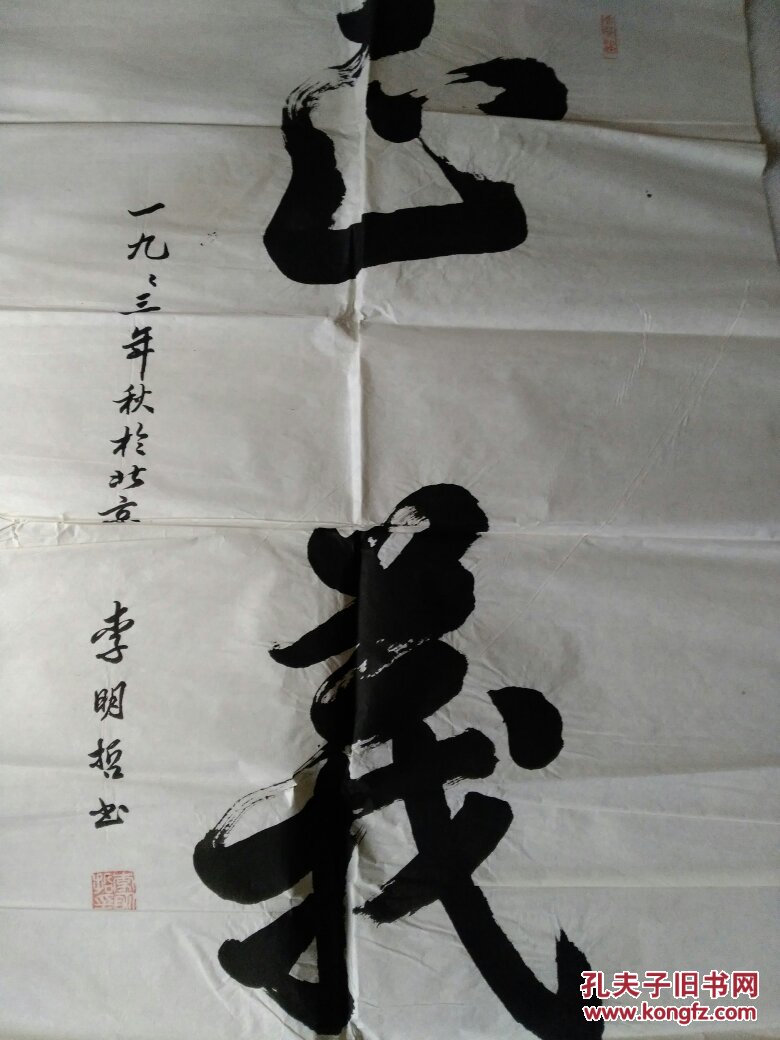 正義
一九〻三年秋於北京
李明哲书
孔夫子旧书网
www.kongfz.com